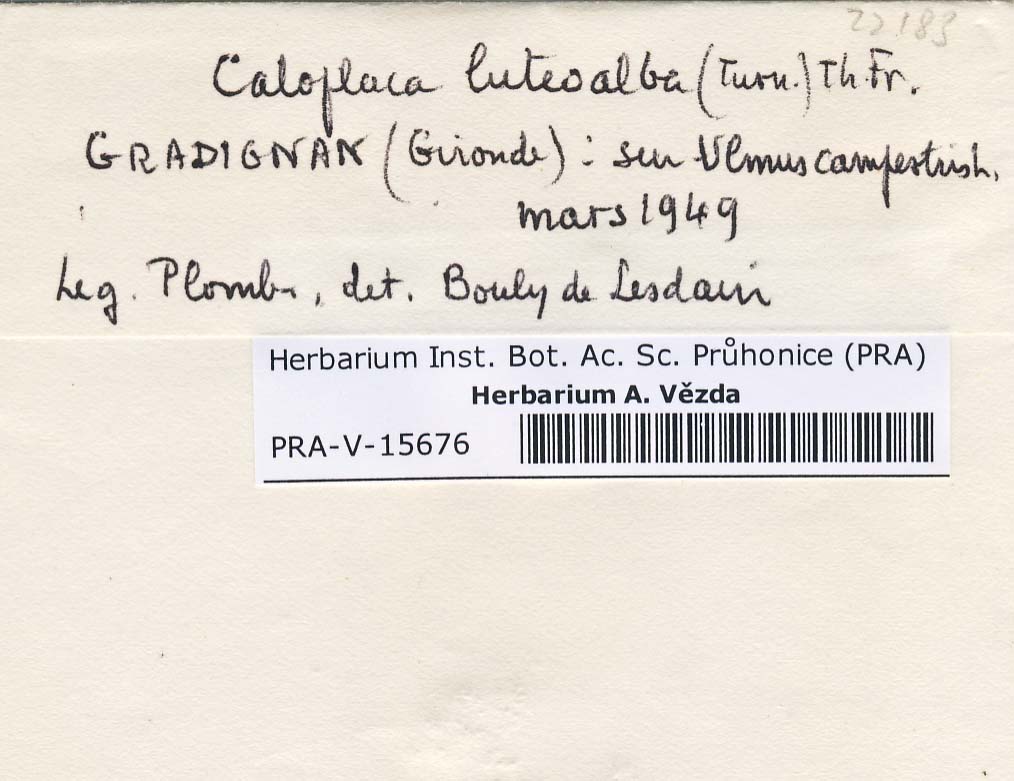 22183
Caloplaca luteoalba (Turn.) Th. Fr.
GRADIGNAN (Gironde) : sur Ulmus campestris L.
mars 1949
Leg. Plomb, det. Bouly de Lesdain
Herbarium Inst. Bot. Ac. Sc. Průhonice (PRA)
Herbarium A. Vězda
PRA-V-15676